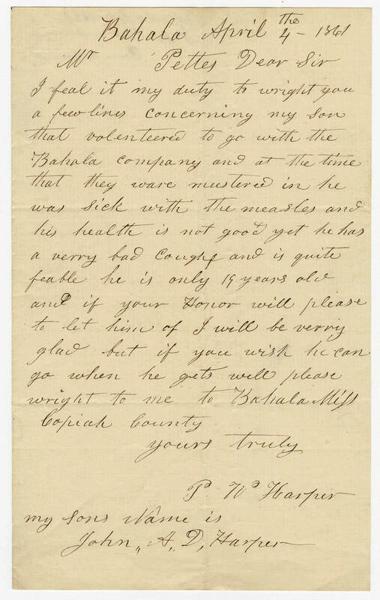 Bahala April the 4 - 1861
Mr Pettes Dear Sir
I feel it my duty to wright you
a few lines concerning my son
that volenteered to go with the
Bahala company and at the time
that they ware mustered in he
was sick with the measles and
his health is not good yet he has
a verry bad cough and is quite
feable he is only 19 years old
and if your Honor will please
to let him of I will be verry
glad but if you wish he can
go when he gets well please
wright to me to Bahala Miss
Copiah County
yours truly
P. W. Harper
my sons Name is
John, A, D, Harper